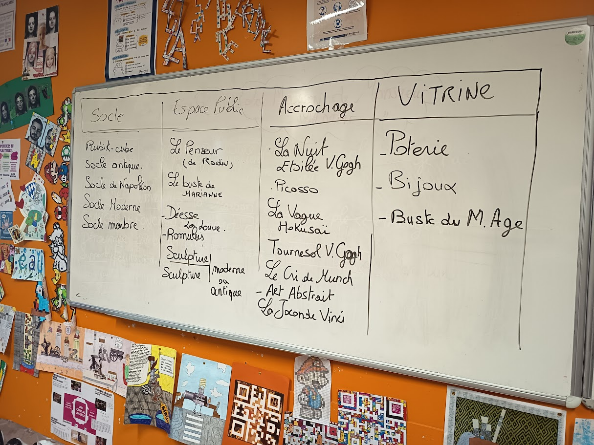 Socle
Rubik-cube
Socle antique.
Socle de Napoléon
Socle Moderne
Socle marbre.
Espace Public
Le Penseur
(de Rodin)
Le buste de
MARIANNE
- Déesse
La Louve.
- Romulus
Sculpture
Sculpture
moderne
ou
antique
Accrochage
. La Nuit
Etoilée V. Gogh
. Picasso
La Vague
Hokusai
Tournesol V. Gogh
Le Cri de Munch
- Art Abstrait
La Joconde Vinci
VITRINE
- Poterie
- Bijoux
- Buste du M. Age